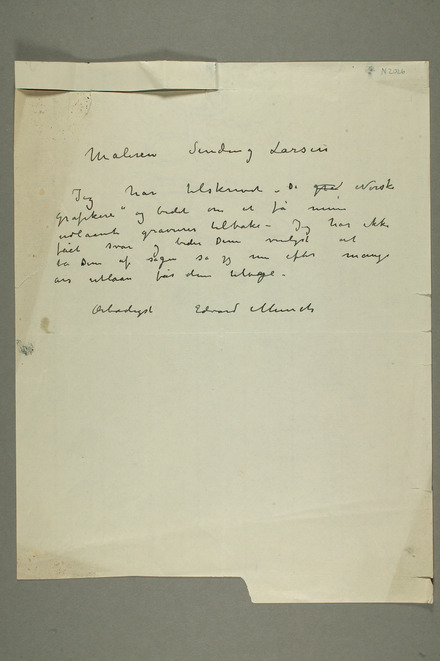 N 2026
Maleren Sinding Larsen
Jeg har tilskrevet „De grad Norske
Grafikere" og bedt om at få mine
udlaante gravurer tilbake – Jeg har ikke
fået svar og beder Dem venligst at
ta Dem af sagen så jeg nu efter mange
års utlaan får dem tilbage –
Ærbødigst Edvard Munch